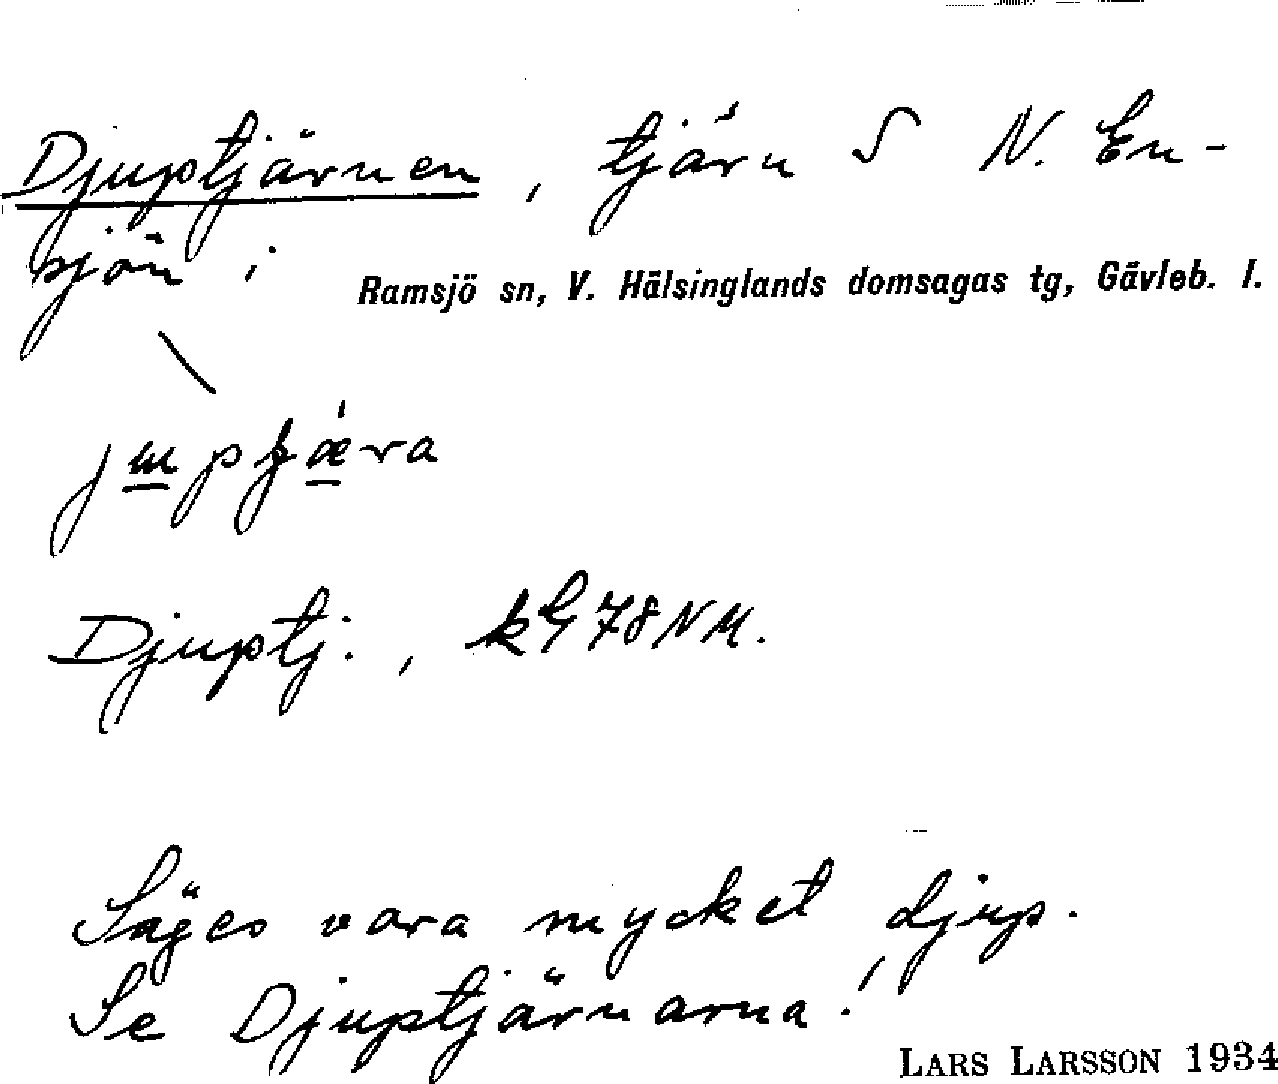 Djuptjärnen, tjärn S N. En-
sjön i Ramsjö sn, V. Hälsinglands domsagas tg, Gävleb. l.
Djuptj., kG 78 NM.
Säges vara mycket djup.
Se Djuptjärnarna!
LARS LARSSON 1934